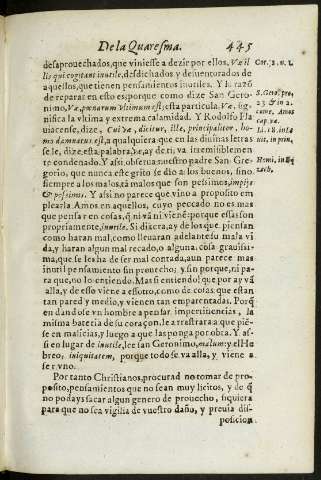 De la Quaresma. 445
desaprouechados, que viniesse a dezir por ellos. Væ il
lis qui cogitant inutile, desdichados y desuenturados de
aquellos, que tienen pensamientos inutiles. Y la razõ
de reparar en esto es; porque como dize San Gero-
nimo, Væ, pœnarum vltimum est; esta particula. Væ, sig-
nifica la vltima y extrema calamidad. Y Rodolfo Fla
uiacense, dize, Cui væ, dicitur, ille, principaliter, ho-
mo damnatus est, a qualquiera que vna de las diuinas letras
se le, dize esta palabra, Væ, ay, de ti, va irremisiblemen
te condenado. Y assi obserua nuestro padre San Gre-
gorio, que nunca este grito se dio a los buenos, sino
siempre a los malos, rà malos que son pessimos, impijs
& pessimis. Y assi no parece que vino a proposito em
plearla Amos en aquellos, cuyo peccado no es mas
que pensar en cosas, q̃ ni vá ni viené: porque essas son
propriamente, inutile. Si dixera, ay de los que piensan
como haran mal, como lleuaran adelante su mala vi
da, y haran algun mal recado, o alguna cosa grauissi-
ma, que se les ha de ser mal contada, aun parece mas
inutil pensamiento sin prouecho; y sin porque, ni pa-
ra que, no lo entiendo. Mas si entiendo! que por ay vá
alla, y de esso viene a essotro, como de cosas que estan
tan pared y medio, y vienen tan emparentadas. Porq̃
en dandose vn hombre a pensar impertinencias, la
misma bateria de su coraçon le arrastrara a que pié-
se en malicias, y luego a que las ponga por obra. Y as-
si en lugar de inutile, lee san Geronimo, malum: y el He
breo, iniquitatem, porque todo se va alla, y viene a
se r vno.
Por tanto Christianos, procurad no tomar de pro-
posito, pensamientos que no sean muy licitos, y de q̃
no podays sacar algun genero de prouecho, siquiera
para que no sea vigilia de vuestro daño, y preuia dis-
posicion
S. Gero. pro.
Homi. in Eq
zach.